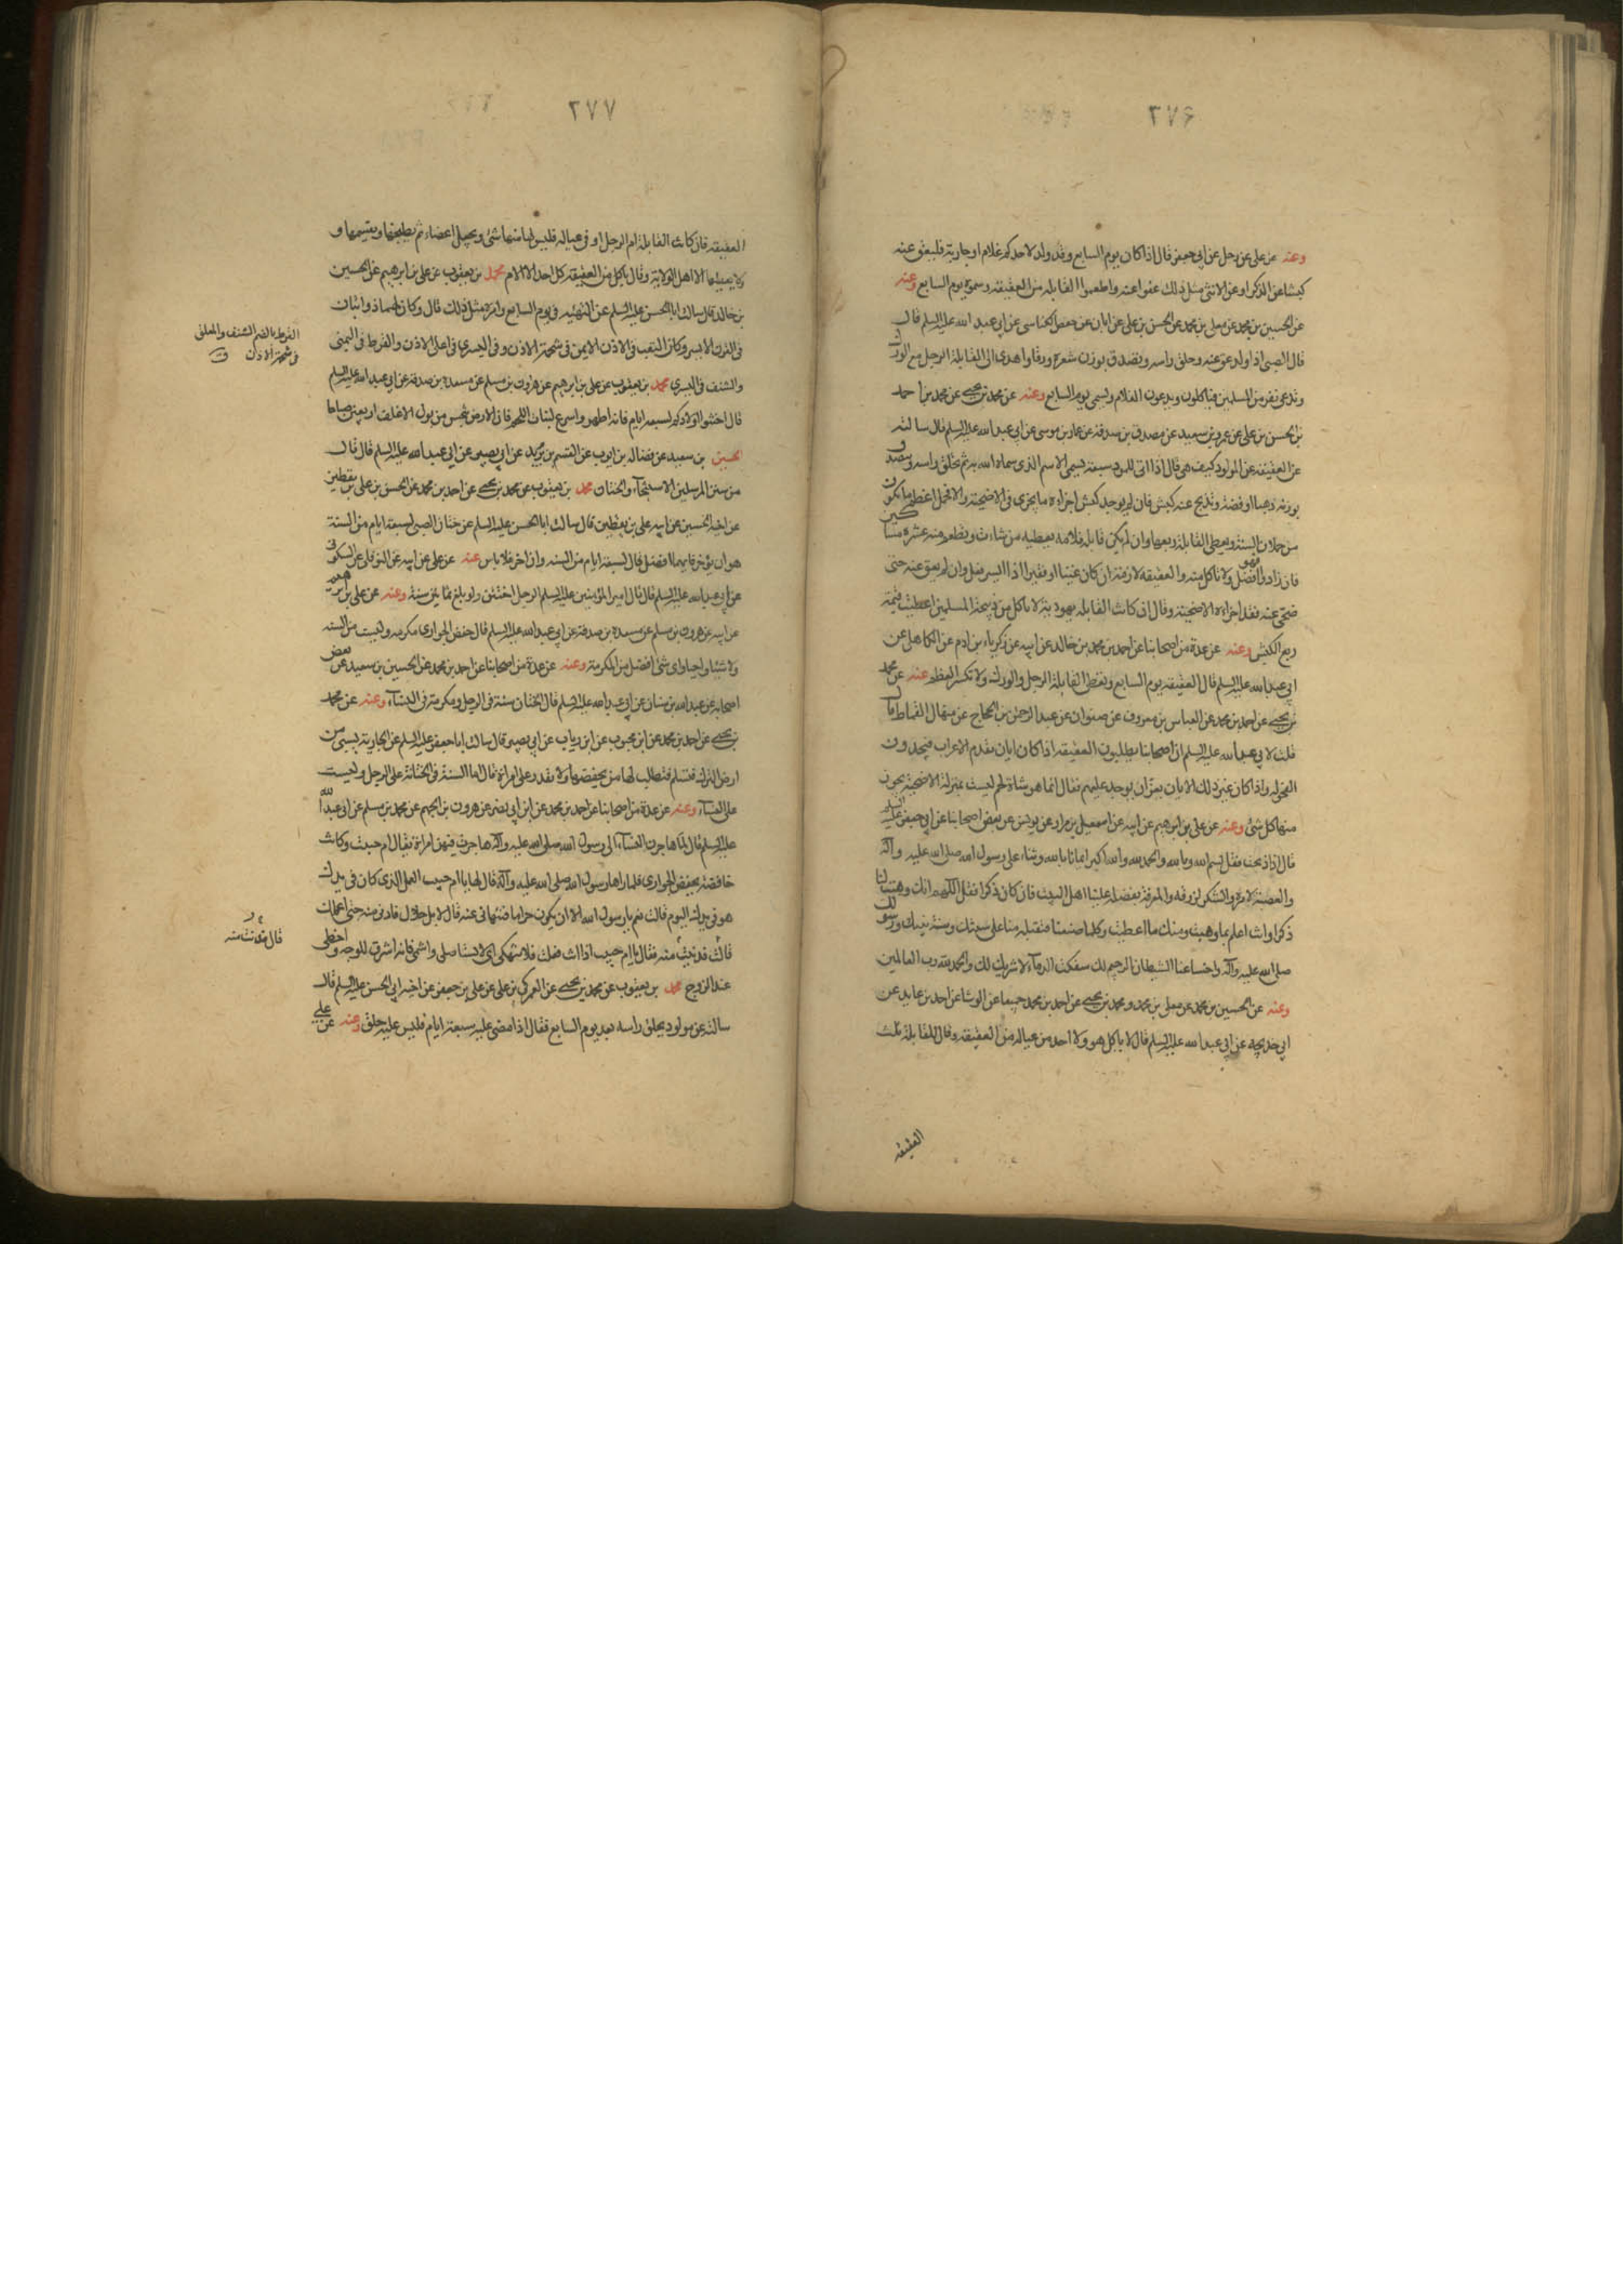 ٢٧۶
وعنه عن علي عن رجل عن ابي جعفر قال اذا كان يوم السابع وقد ولد لاحدكم غلام او جارية فليعق عنه
كبشا عن الذكر او عن الانثى مثل ذلك عقوا عنه واطعموا القابلة من العقيقة وسموه يوم السابع وعنه
عن الحسين بن محمد عن معلى بن محمد عن الحسن بن علي عن ابان عن حفص الكناسي عن ابي عبد الله عليه السلم قال
قال الصبي اذا ولد عق عنه وحلق راسه وتصدق بوزن شعره ورقا واهدي الى القابلة الرجل مع الورك
وتدعى نفر من المسلمين فياكلون ويدعون للغلام ويسمى يوم السابع وعنه عن محمد بن يحيى عن محمد بن احمد
بن الحسن بن علي عن عمرو بن سعيد عن مصدق بن صدقة عن عمار بن موسى عن ابي عبد الله عليه السلم قال سالته
عن العقيقة عن المولود كيف هي قال اذا اتى للمولود سبعة يسمى الاسم الذي سماه الله به ثم يحلق راسه ويتصدق
بوزنه ذهبا او فضة ويذبح عنه كبش فان لم يوجد كبش اجزاه ما يجزي في الاضحية والا فحمل اعظم ما يكون
من حملان السنة ويعطى القابلة ربعها وان لم يكن قابلة فلامه يعطيه من شاءت ويطعم منه عشرة من المسلمين
فان زاد فهو افضل ولا تاكل منه والعقيقة لازمة ان كان غنيا او فقيرا اذا ايسر فعل وان لم يعق عنه حتى
ضحى عنه فقد اجزاه الاضحية وقال ان كانت القابلة يهودية لا ياكل من ذبيحة المسلمين اعطيت قيمة
ربع الكبش وعنه عن عدة من اصحابنا عن احمد بن محمد بن خالد عن ابيه عن زكرياء بن ادم عن الكاهلي عن
ابي عبد الله عليه السلم قال العقيقة يوم السابع ويعطى القابلة الرجل والورك ولا تكسر العظم وعنه عن محمد
بن يحيى عن احمد بن محمد عن العباس بن معروف عن صفوان عن عبد الرحمن بن الحجاج عن منهال القماط قال
قلت لابي عبد الله عليه السلم ان اصحابنا يطلبون العقيقة اذا كان ابان يقدم الاعراب فيجدون
الفحولة واذا كان غير ذلك الابان يعز ان يوجد عليهم فقال انما هو شاة لحم ليست بمنزلة الاضحية يجوز
منها كل شئ وعنه عن علي بن ابرهيم عن ابيه عن اسمعيل بن مرار عن يونس عن بعض اصحابنا عن ابي جعفر عليه السلم
قال اذا ذبحت فقل بسم الله وبالله والحمد لله والله اكبر ايمانا بالله وثناء على رسول الله صلى الله عليه وآله
والعصمة لامره والشكر لرزقه والمعرفة بفضله علينا اهل البيت فان كان ذكرا فقل اللهم انك وهبت لنا
ذكرا وانت اعلم بما وهبت ومنك ما اعطيت وكلما صنعنا فتقبله منا على سنتك وسنة نبيك ورسولك
صلى الله عليه وآله واخسا عنا الشيطان الرجيم لك سفكت الدمآء لا شريك لك والحمد لله رب العالمين
وعنه عن الحسين بن محمد عن معلى بن محمد ومحمد بن يحيى عن احمد بن محمد جميعا عن الوشا عن احمد بن عايد عن
ابي خديجة عن ابي عبد الله عليه السلم قال لا ياكل هو ولا احد من عياله من العقيقة وقال للقابلة ثلث
العقيقة
٢٧٧
العقيقة فان كانت القابلة ام الرجل او في عياله فليس لها منها شئ ويجعل اعضاء ثم يطبخها ويقسمها و
لا يعطيها الا اهل الولاية وقال ياكل من العقيقة كل احد الا الام محمد بن يعقوب عن علي بن ابرهيم عن الحسين
بن خالد قال سالت ابا الحسن عليه السلم عن التهنية في يوم السابع وامره مثل ذلك قال وكان لهما ذوابتان
في القرن الايسر وكان الثقب في الاذن الايمن في شحمة الاذن وفي اليسرى في اعلى الاذن والقرط في اليمنى
والشنف في اليسرى محمد بن يعقوب عن علي بن ابرهيم عن هرون بن مسلم عن مسعدة بن صدقة عن ابي عبد الله عليه السلم
قال اختنوا اولادكم لسبعة ايام فانه اطهر واسرع لنبات اللحم فان الارض تنجس من بول الاغلف اربعين صباحا
الحسين بن سعيد عن فضالة بن ايوب عن القسم بن بريد عن ابي بصير عن ابي عبد الله عليه السلم قال قال
من سنن المرسلين الاستنجآء والختان محمد بن يعقوب عن محمد بن يحيى عن احمد بن محمد عن الحسن بن علي بن يقطين
عن اخيه الحسين عن ابيه علي بن يقطين قال سالت ابا الحسن عليه السلم عن ختان الصبي لسبعة ايام من السنة
هو ان يؤخر فايهما افضل قال لسبعة ايام من السنة وان اخر فلا باس عنه عن علي عن ابيه عن النوفلي عن السكوني
عن ابي عبد الله عليه السلم قال قال امير المؤمنين عليه السلم الرجل اختتن ولو بلغ ثمانين سنة وعنه عن علي بن ابرهيم
عن ابيه عن هرون بن مسلم عن مسعدة بن صدقة عن ابي عبد الله عليه السلم قال خفض الجواري مكرمة وليست من السنة
ولا شيئا واجبا واي شئ افضل من المكرمة وعنه عن عدة من اصحابنا عن احمد بن محمد عن الحسين بن سعيد عن بعض
اصحابه عن عبد الله بن سنان عن ابي عبد الله عليه السلم قال الختان سنة في الرجل ومكرمة في النسآء وعنه عن محمد
بن يحيى عن احمد بن محمد عن ابن محبوب عن ابن رياب عن ابي بصير قال سالت ابا جعفر عليه السلم عن الجارية يسبى من
ارض الشرك فتسلم فتطلب لها من يخفضها ولا يقدر على امراة قال اما السنة في الختانة على الرجل وليست
على النسآء وعنه عن عدة من اصحابنا عن احمد بن محمد عن ابن ابي نصر عن هرون بن الجهم عن محمد بن مسلم عن ابي عبد الله
عليه السلم قال لما هاجرن النسآء الى رسول الله صلى الله عليه وآله هاجرت فيهن امراة يقال ام حبيب وكانت
خافضة تخفض الجواري فلما راها رسول الله صلى الله عليه وآله قال لها يا ام حبيب العمل الذي كان في يدك
هو في يدك اليوم قالت نعم يا رسول الله الا ان يكون حراما فتنهاني عنه قال لا بل حلال فادني مني حتى اعلمك
قالت فدنيت منه فقال يا ام حبيب اذا انت فعلت فلا تنهكي اي لا تستاصلي واشمي فانه اشرق للوجه واحظى
عند الزوج محمد بن يعقوب عن محمد بن يحيى عن العمركي بن علي عن علي بن جعفر عن اخيه ابي الحسن عليه السلم قال
سالته عن مولود يحلق راسه بعد يوم السابع فقال اذا مضى عليه سبعة ايام فليس عليه حلق وعنه عن علي
القرط بالضم الشنف والمعلق
في شحمة الاذن ق